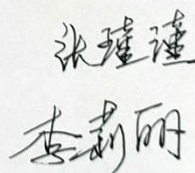 张瑾瑾
李莉丽